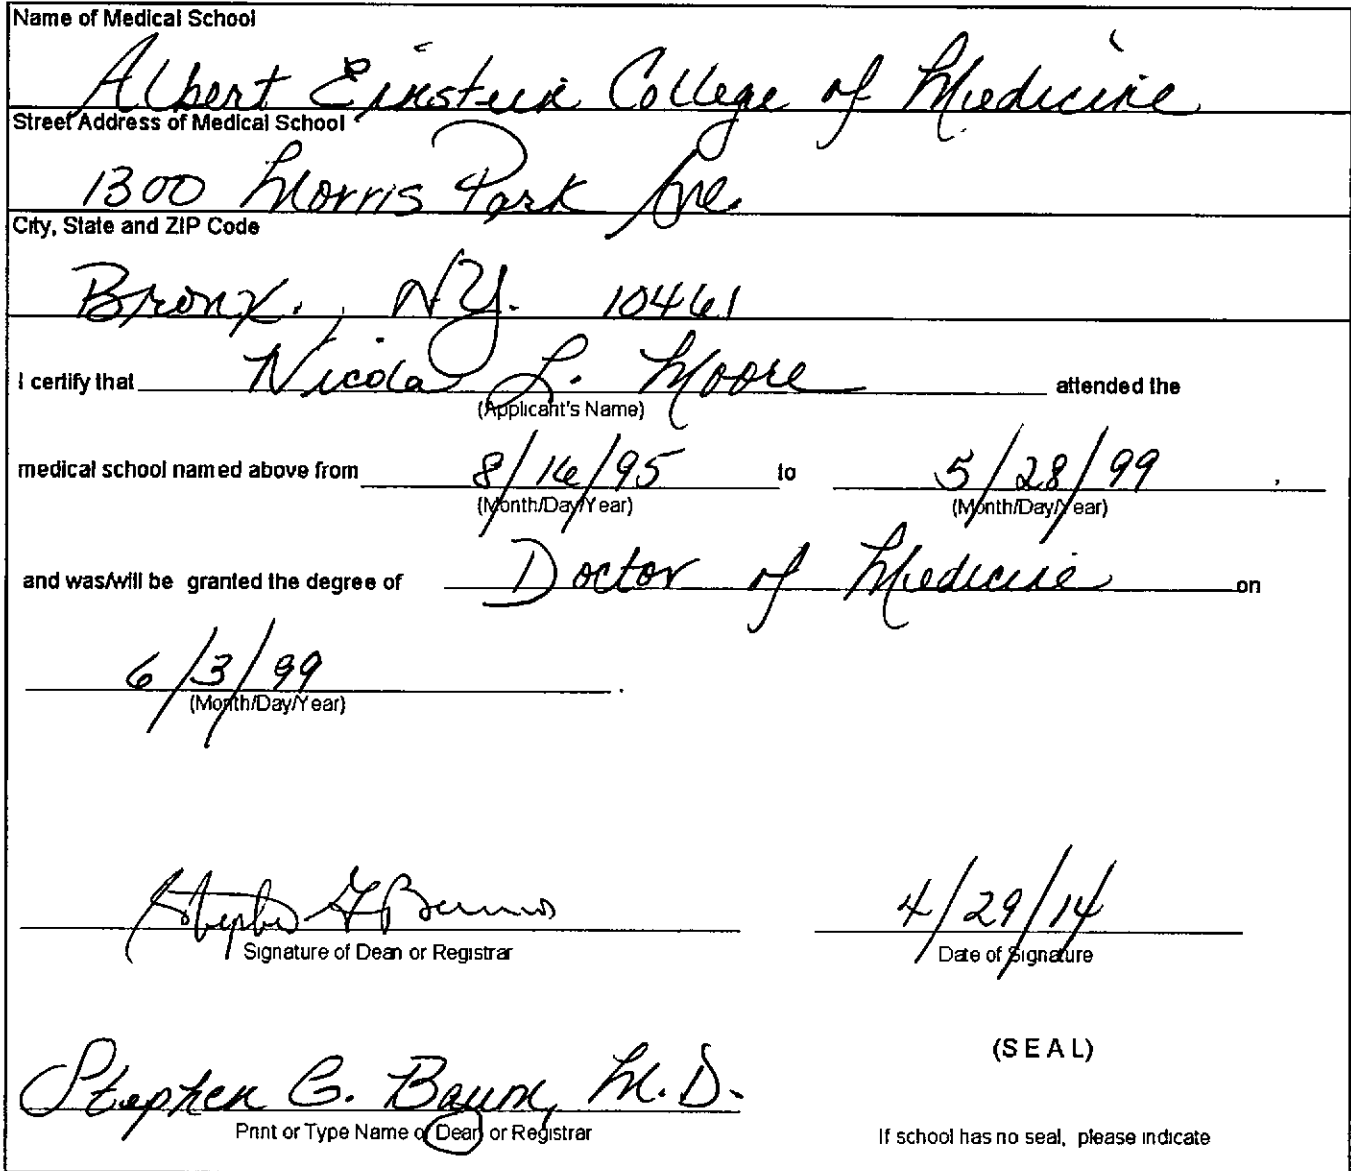 Name of Medical School
Albert Einstein College of Medicine
Street Address of Medical School
1300 Morris Park Ave.
City, State and ZIP Code
Bronx., NY. 10461
I certify that Nicola L. Moore attended the
(Applicant's Name)
medical school named above from 8/16/95 to 5/28/99.
(Month/Day/Year) (Month/Day/Year)
and was/will be granted the degree of Doctor of Medicine on
6/3/99.
(Month/Day/Year)
Stephen G Baum 4/29/14
Signature of Dean or Registrar Date of Signature
(SEAL)
Stephen G. Baum, M.D.
Print or Type Name of Dean or Registrar If school has no seal, please indicate